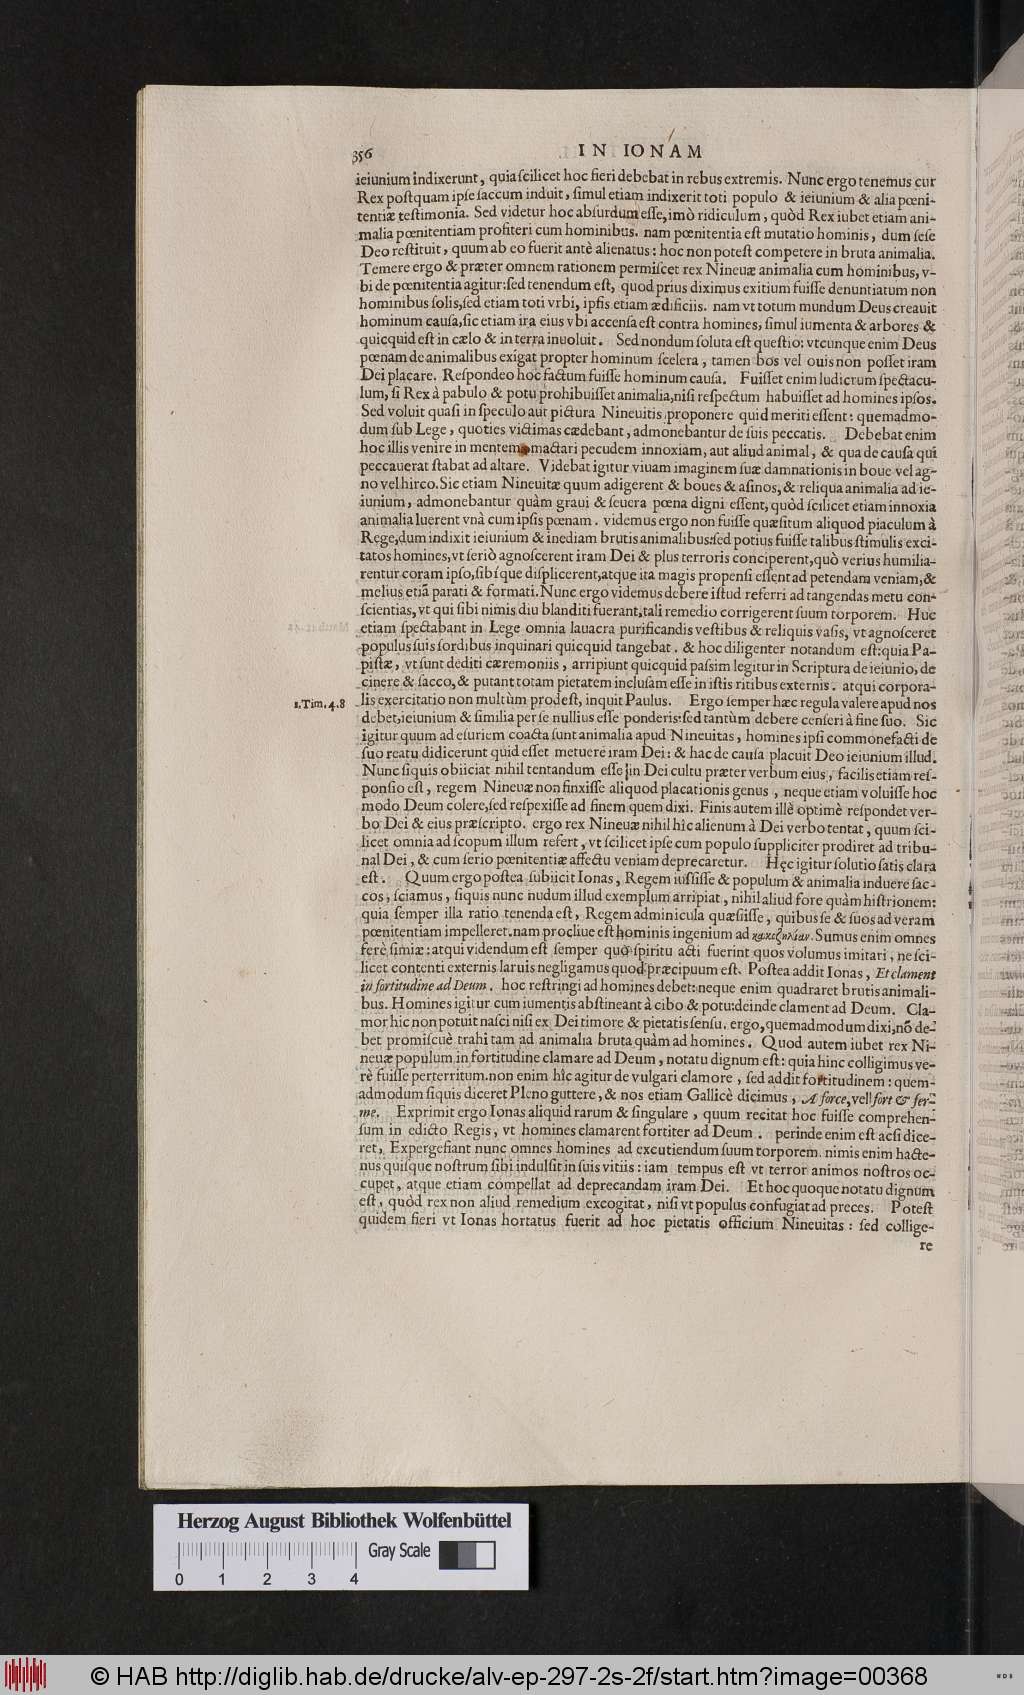 356
IN IONAM
ieiunium indixerunt, quia ſcilicet hoc fieri debebat in rebus extremis. Nunc ergo tenemus cur
Rex poſtquam ipſe ſaccum induit, ſimul etiam indixerit toti populo & ieiunium & alia pœni-
tentiæ teſtimonia. Sed videtur hoc abſurdum eſſe, imò ridiculum, quòd Rex iubet etiam ani-
malia pœnitentiam profiteri cum hominibus. nam pœnitentia eſt mutatio hominis, dum ſeſe
Deo reſtituit, quum ab eo fuerit antè alienatus: hoc non poteſt competere in bruta animalia.
Temere ergo & præter omnem rationem permiſcet rex Nineuæ animalia cum hominibus, v-
bi de pœnitentia agitur: ſed tenendum eſt, quod prius diximus exitium fuiſſe denuntiatum non
hominibus ſolis, ſed etiam toti vrbi, ipſis etiam ædificiis. nam vt totum mundum Deus creauit
hominum cauſa, ſic etiam ira eius vbi accenſa eſt contra homines, ſimul iumenta & arbores &
quicquid eſt in cælo & in terra inuoluit. Sed nondum ſoluta eſt queſtio: vtcunque enim Deus
pœnam de animalibus exigat propter hominum ſcelera, tamen bos vel ouis non poſſet iram
Dei placare. Reſpondeo hoc factum fuiſſe hominum cauſa. Fuiſſet enim ludicrum ſpectacu-
lum, ſi Rex à pabulo & potu prohibuiſſet animalia, niſi reſpectum habuiſſet ad homines ipſos.
Sed voluit quaſi in ſpeculo aut pictura Nineuitis proponere quid meriti eſſent: quemadmo-
dum ſub Lege, quoties victimas cædebant, admonebantur de ſuis peccatis. Debebat enim
hoc illis venire in mentem mactari pecudem innoxiam, aut aliud animal, & qua de cauſa qui
peccauerat ſtabat ad altare. Videbat igitur viuam imaginem ſuæ damnationis in boue vel ag-
no vel hirco. Sic etiam Nineuitæ quum adigerent & boues & aſinos, & reliqua animalia ad ie-
iunium, admonebantur quàm graui & ſeuera pœna digni eſſent, quòd ſcilicet etiam innoxia
animalia luerent vnà cum ipſis pœnam. videmus ergo non fuiſſe quæſitum aliquod piaculum à
Rege, dum indixit ieiunium & inediam brutis animalibus: ſed potius fuiſſe talibus ſtimulis exci-
tatos homines, vt ſeriò agnoſcerent iram Dei & plus terroris conciperent, quò verius humilia-
rentur coram ipſo, ſibíque diſplicerent, atque ita magis propenſi eſſent ad petendam veniam, &
melius etiã parati & formati. Nunc ergo videmus debere iſtud referri ad tangendas metu con-
ſcientias, vt qui ſibi nimis diu blanditi fuerant, tali remedio corrigerent ſuum torporem. Huc
etiam ſpectabant in Lege omnia lauacra purificandis veſtibus & reliquis vaſis, vt agnoſceret
populus ſuis ſordibus inquinari quicquid tangebat. & hoc diligenter notandum eſt: quia Pa-
piſtæ, vt ſunt dediti cæremoniis, arripiunt quicquid paſsim legitur in Scriptura de ieiunio, de
cinere & ſacco, & putant totam pietatem incluſam eſſe in iſtis ritibus externis. atqui corpora-
1. Tim. 4. 8
lis exercitatio non multùm prodeſt, inquit Paulus. Ergo ſemper hæc regula valere apud nos
debet, ieiunium & ſimilia per ſe nullius eſſe ponderis: ſed tantùm debere cenſeri à fine ſuo. Sic
igitur quum ad eſuriem coacta ſunt animalia apud Nineuitas, homines ipſi commonefacti de
ſuo reatu didicerunt quid eſſet metuere iram Dei: & hac de cauſa placuit Deo ieiunium illud.
Nunc ſiquis obiiciat nihil tentandum eſſe in Dei cultu præter verbum eius, facilis etiam reſ-
ponſio eſt, regem Nineuæ non finxiſſe aliquod placationis genus, neque etiam voluiſſe hoc
modo Deum colere, ſed reſpexiſſe ad finem quem dixi. Finis autem illè optimè reſpondet ver-
bo Dei & eius præſcripto. ergo rex Nineuæ nihil hîc alienum à Dei verbo tentat, quum ſci-
licet omnia ad ſcopum illum refert, vt ſcilicet ipſe cum populo ſuppliciter prodiret ad tribu-
nal Dei, & cum ſerio pœnitentiæ affectu veniam deprecaretur. Hęc igitur ſolutio ſatis clara
eſt. Quum ergo poſtea ſubiicit Ionas, Regem iuſſiſſe & populum & animalia induere ſac-
cos, ſciamus, ſiquis nunc nudum illud exemplum arripiat, nihil aliud fore quàm hiſtrionem:
quia ſemper illa ratio tenenda eſt, Regem adminicula quæſiiſſe, quibus ſe & ſuos ad veram
pœnitentiam impelleret. nam procliue eſt hominis ingenium ad κακοζηλίαν. Sumus enim omnes
ferè ſimiæ: atqui videndum eſt ſemper quo ſpiritu acti fuerint quos volumus imitari, ne ſci-
licet contenti externis laruis negligamus quod præcipuum eſt. Poſtea addit Ionas, Et clament
in fortitudine ad Deum. hoc reſtringi ad homines debet: neque enim quadraret brutis animali-
bus. Homines igitur cum iumentis abſtineant à cibo & potu: deinde clament ad Deum. Cla-
mor hic non potuit naſci niſi ex Dei timore & pietatis ſenſu. ergo, quemadmodum dixi, nõ de-
bet promiſcuè trahi tam ad animalia bruta quàm ad homines. Quod autem iubet rex Ni-
neuæ populum in fortitudine clamare ad Deum, notatu dignum eſt: quia hinc colligimus ve-
rè fuiſſe perterritum. non enim hîc agitur de vulgari clamore, ſed addit fortitudinem: quem-
admodum ſiquis diceret Pleno guttere, & nos etiam Gallicè dicimus, A force, vel fort & fer-
me. Exprimit ergo Ionas aliquid rarum & ſingulare, quum recitat hoc fuiſſe comprehen-
ſum in edicto Regis, vt homines clamarent fortiter ad Deum. perinde enim eſt acſi dice-
ret, Expergefiant nunc omnes homines ad excutiendum ſuum torporem. nimis enim hacte-
nus quiſque noſtrum ſibi indulſit in ſuis vitiis: iam tempus eſt vt terror animos noſtros oc-
cupet, atque etiam compellat ad deprecandam iram Dei. Et hoc quoque notatu dignum
eſt, quòd rex non aliud remedium excogitat, niſi vt populus confugiat ad preces. Poteſt
quidem fieri vt Ionas hortatus fuerit ad hoc pietatis officium Nineuitas: ſed collige-
re
Herzog August Bibliothek Wolfenbüttel
Gray Scale
0 1 2 3 4
© HAB http://diglib.hab.de/drucke/alv-ep-297-2s-2f/start.htm?image=00368